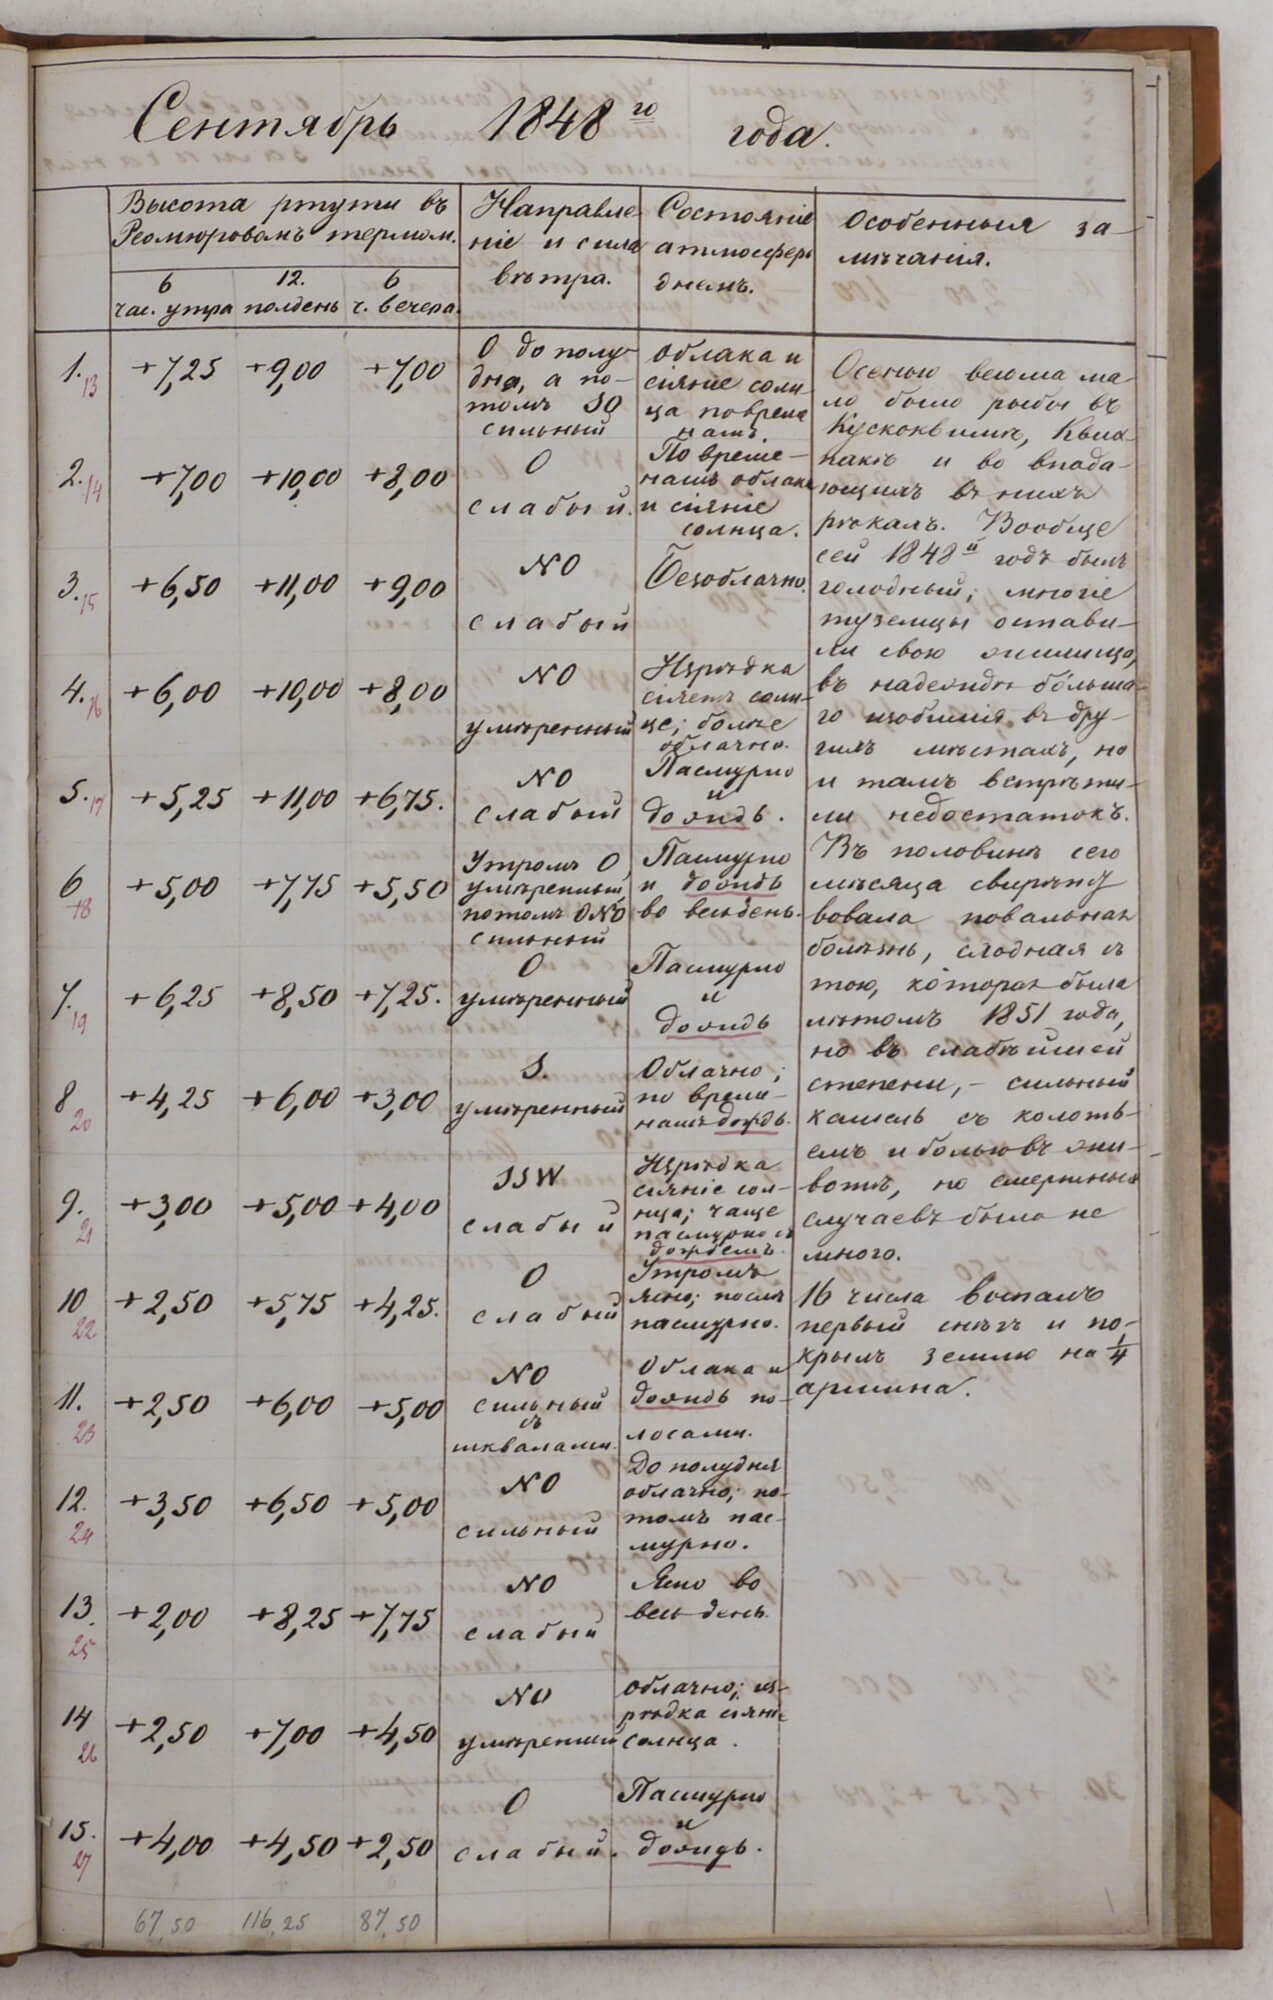 Сентябрь 1848го года.
Высота ртути въ
Реомюровомъ термом.
6 12. 6
час. утра полдень ч. вечера.
Направле-
ніе и сила
вѣтра.
Состояніе
атмосферы
днемъ.
Особенныя за-
мѣчанія.
1. 13 +7,25 +9,00 +7,00
O до полу-
дня, а по-
томъ SO
сильный
облака и
сіяніе солн-
ца повреме
намъ.
2. 14 +7,00 +10,00 +8,00
O
слабый.
По време-
намъ облака
и сіяніе
солнца.
3. 15 +6,50 +11,00 +9,00
NO
слабый
Безоблачно.
4. 16 +6,00 +10,00 +8,00
NO
умѣренный
Изрѣдка
сіяетъ солн-
це; болѣе
облачно.
5. 17 +5,25 +11,00 +6,75.
NO
слабый
Пасмурно
и
дождь.
6 18 +5,00 +7,75 +5,50
Утромъ O
умѣренный,
потомъ ONO
сильный
Пасмурно
и дождь
во весь день.
7. 19 +6,25 +8,50 +7,25.
O
умѣренный
Пасмурно
и
дождь
8 20 +4,25 +6,00 +3,00
S.
умѣренный
Облачно;
по време-
намъ дождь.
9. 21 +3,00 +5,00 +4,00
SSW
слабый
Изрѣдка
сіяніе сол-
нца; чаще
пасмурно съ
дождемъ.
10 22 +2,50 +5,75 +4,25.
O
слабый
Утромъ
ясно; послѣ
пасмурно.
11. 23 +2,50 +6,00 +5,00
NO
сильный
съ
шквалами.
Облака и
дождь по-
лосами.
12. 24 +3,50 +6,50 +5,00
NO
сильный
До полудня
облачно; по-
томъ пас-
мурно.
13. 25 +2,00 +8,25 +7,75
NO
слабый
Ясно во
весь день.
14 26 +2,50 +7,00 +4,50
NO
умѣренный
облачно; из-
рѣдка сіяніе
солнца.
15. 27 +4,00 +4,50 +2,50
O
слабый.
Пасмурно
и
дождь.
67,50 116,25 87,50
Осенью весьма ма-
ло было рыбы въ
Кускоквимѣ, Квих-
пакѣ и во впада-
ющихъ въ нихъ
рѣкахъ. Вообще
сей 1848й годъ былъ
голодный; многіе
туземцы остави-
ли свою жилища,
въ надеждѣ бóльша-
го изобилія въ дру-
гихъ мѣстахъ, но
и тамъ встрѣти-
ли недостатокъ.
Въ половинѣ сего
мѣсяца свирѣпст
вовала повальная
болѣзнь, сходная съ
тою, которая была
лѣтомъ 1851 года,
но въ слабѣйшей
степени, - сильный
кашель съ колоть-
емъ и болью въ жи-
вотѣ, но смертныхъ
случаевъ было не
много.
16 числа выпалъ
первый снѣгъ и по-
крылъ землю на 1/4
аршина.